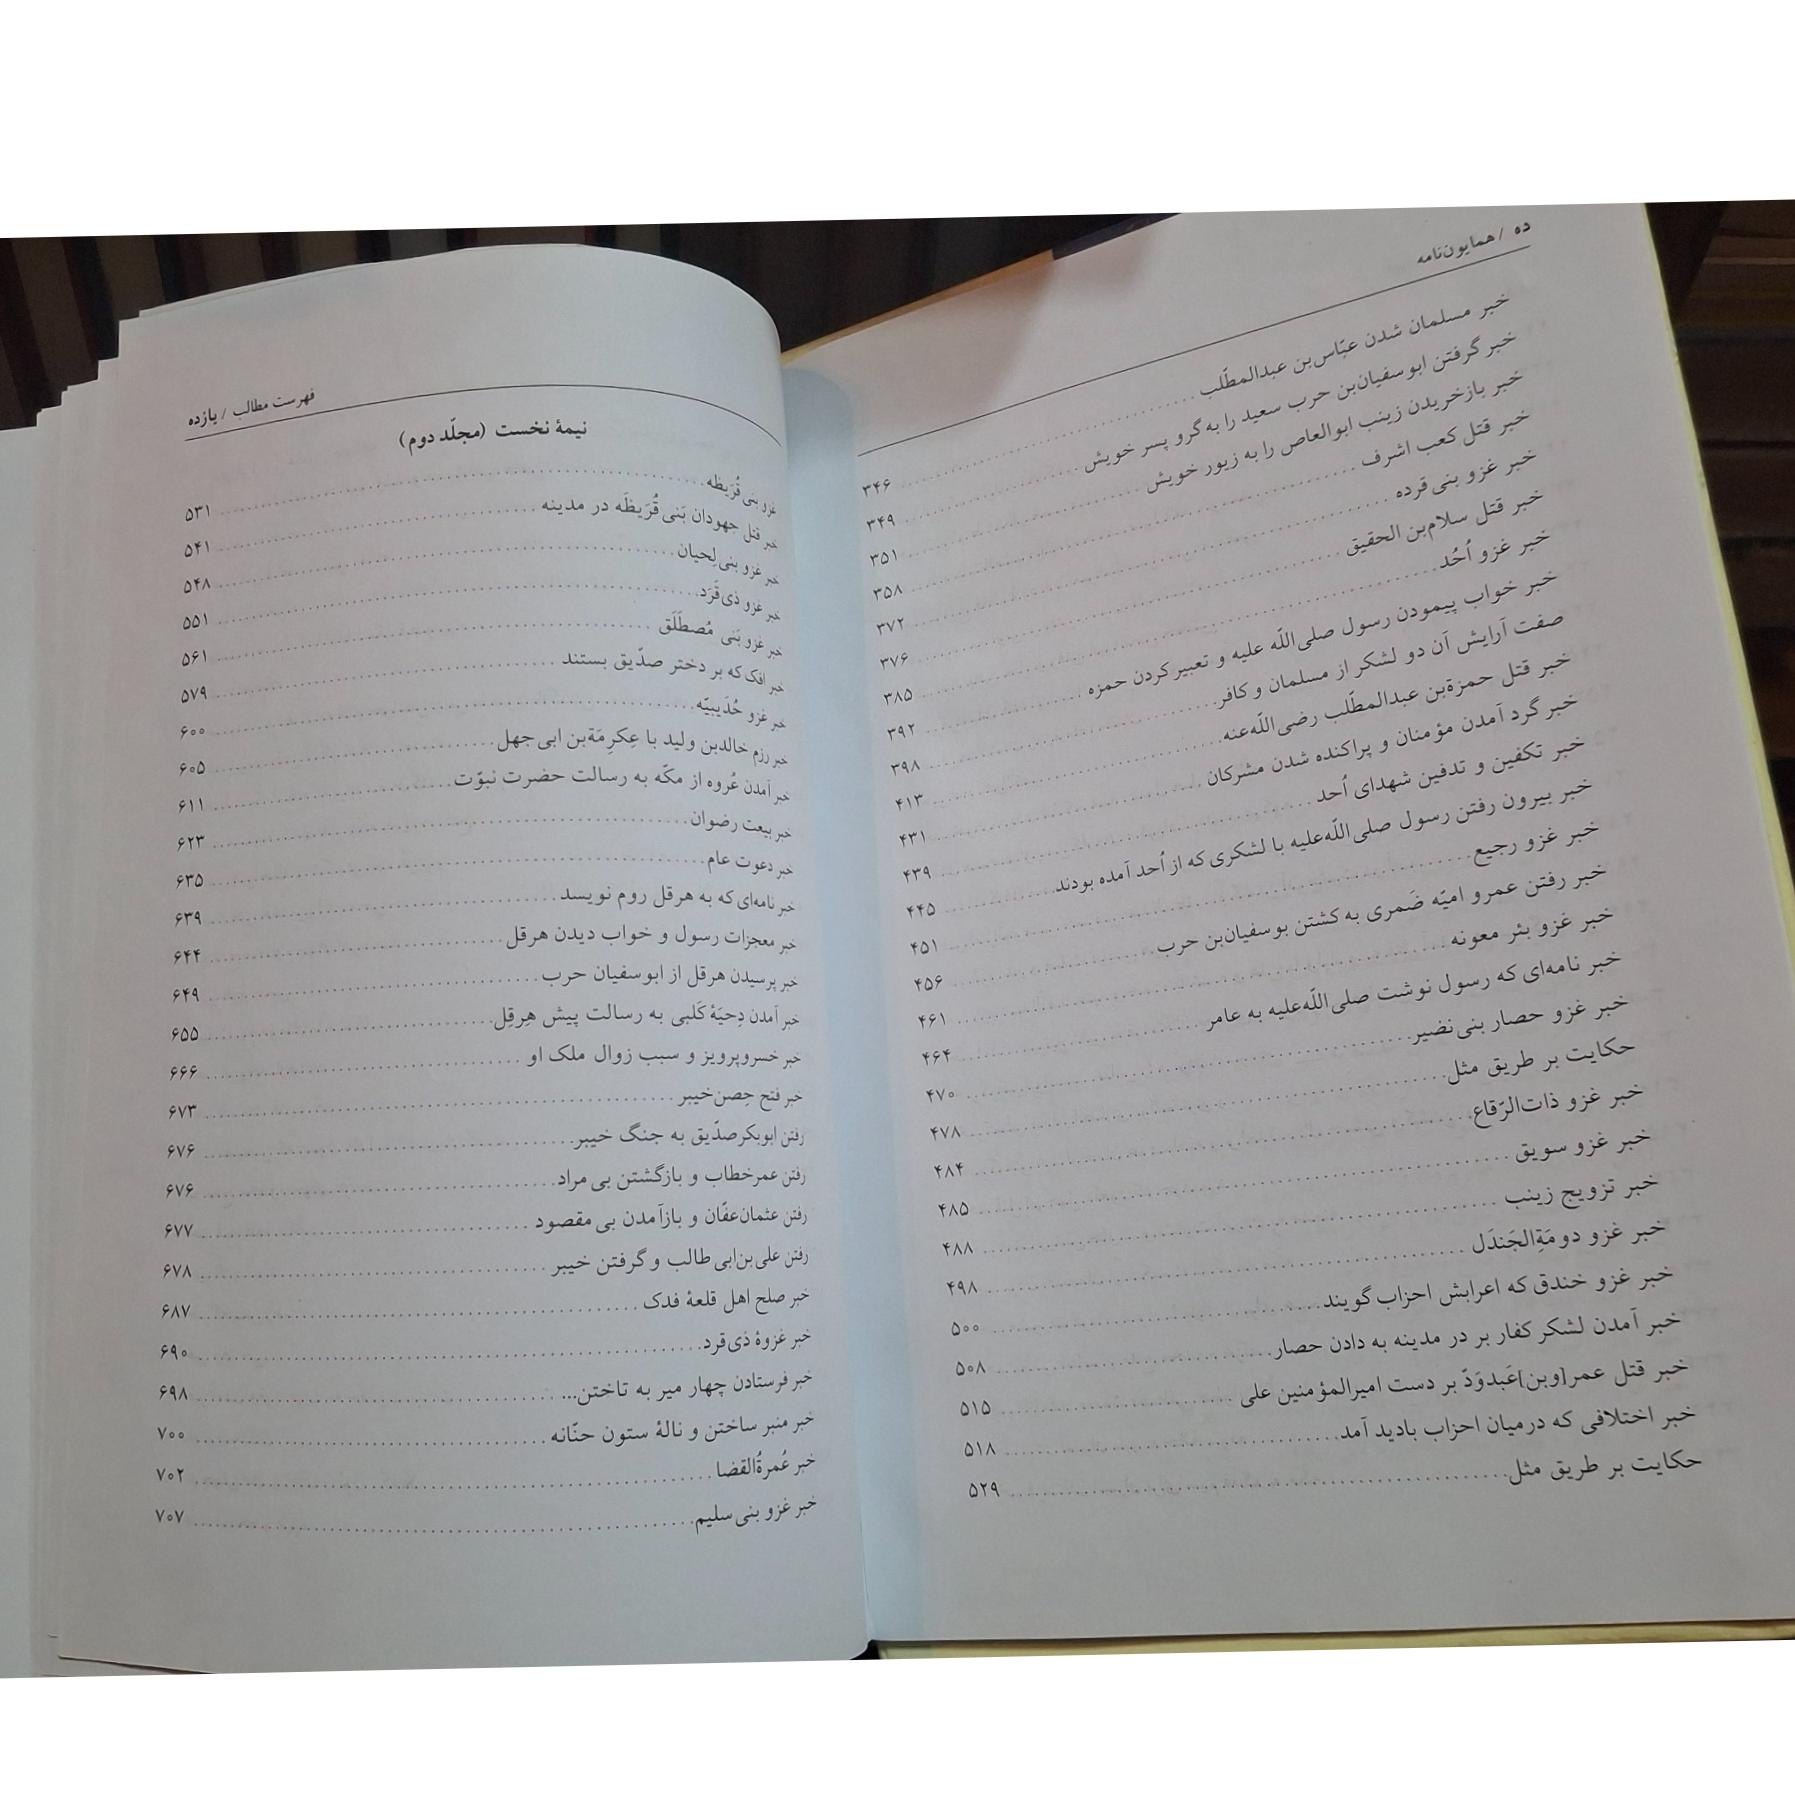 ده / همایون‌نامه
خبر مسلمان شدن عبّاس‌بن عبدالمطّلب ۳۴۶
خبر گرفتن ابوسفیان‌بن حرب سعید را به گرو پسر خویش ۳۴۹
خبر بازخریدن زینب ابوالعاص را به زیور خویش ۳۵۱
خبر قتل کعب اشرف ۳۵۸
خبر غزو بنی‌قرده ۳۷۲
خبر قتل سلام‌بن الحقیق ۳۷۶
خبر غزو اُحُد ۳۸۵
خبر خواب پیمودن رسول صلی‌اللّه علیه و تعبیر کردن حمزه ۳۹۲
صفت آرایش آن دو لشکر از مسلمان و کافر ۳۹۸
خبر قتل حمزةبن عبدالمطّلب رضی‌اللّه‌عنه ۴۱۳
خبر گرد آمدن مؤمنان و پراکنده شدن مشرکان ۴۳۱
خبر تکفین و تدفین شهدای اُحد ۴۳۹
خبر بیرون رفتن رسول صلی‌اللّه‌علیه با لشکری که از اُحد آمده بودند ۴۴۵
خبر غزو رجیع ۴۵۱
خبر رفتن عمرو امیّه ضَمری به کشتن بوسفیان‌بن حرب ۴۵۶
خبر غزو بئر معونه ۴۶۱
خبر نامه‌ای که رسول نوشت صلی‌اللّه‌علیه به عامر ۴۶۴
خبر غزو حصار بنی‌نضیر ۴۷۰
حکایت بر طریق مثل ۴۷۸
خبر غزو ذات‌الرّقاع ۴۸۴
خبر غزو سویق ۴۸۵
خبر تزویج زینب ۴۸۸
خبر غزو دومَةِالجَندَل ۴۹۸
خبر غزو خندق که اعرابش احزاب گویند ۵۰۰
خبر آمدن لشکر کفار بر در مدینه به دادن حصار ۵۰۸
خبر قتل عمر[وبن]عَبدوَدّ بر دست امیرالمؤمنین علی ۵۱۵
خبر اختلافی که درمیان احزاب بادید آمد ۵۱۸
حکایت بر طریق مثل ۵۲۹
فهرست مطالب / یازده
نیمهٔ نخست (مجلّد دوم)
غزو بنی قُرَیظه ۵۳۱
خبر قتل جهودان بَنی‌قُرَیظَه در مدینه ۵۴۱
خبر غزو بنی‌لِحیان ۵۴۸
خبر غزو ذی‌قَرَد ۵۵۱
خبر غزو بَنی مُصطَلَق ۵۶۱
خبر افک که بر دختر صدّیق بستند ۵۷۹
خبر غزو حُدَیبیّه ۶۰۰
خبر رزم خالدبن ولید با عِکرِمَةبن ابی‌جهل ۶۰۵
خبر آمدن عُروه از مکّه به رسالت حضرت نبوّت ۶۱۱
خبر بیعت رضوان ۶۲۳
خبر دعوت عام ۶۳۵
خبر نامه‌ای که به هرقل روم نویسد ۶۳۹
خبر معجزات رسول و خواب دیدن هرقل ۶۴۴
خبر پرسیدن هرقل از ابوسفیان حرب ۶۴۹
خبر آمدن دِحیَهٔ کَلبی به رسالت پیش هِرقِل ۶۵۵
خبر خسروپرویز و سبب زوال ملک او ۶۶۶
خبر فتح حِصن‌خیبر ۶۷۳
رفتن ابوبکرصدّیق به جنگ خیبر ۶۷۶
رفتن عمرخطاب و بازگشتن بی‌مراد ۶۷۶
رفتن عثمان‌عفّان و بازآمدن بی‌مقصود ۶۷۷
رفتن علی‌بن‌ابی‌طالب و گرفتن خیبر ۶۷۸
خبر صلح اهل قلعهٔ فدک ۶۸۷
خبر غزوهٔ ذی‌قرد ۶۹۰
خبر فرستادن چهار میر به تاختن... ۶۹۸
خبر منبر ساختن و نالهٔ ستون حنّانه ۷۰۰
خبر عُمرةُالقضا ۷۰۲
خبر غزو بنی‌سلیم ۷۰۷